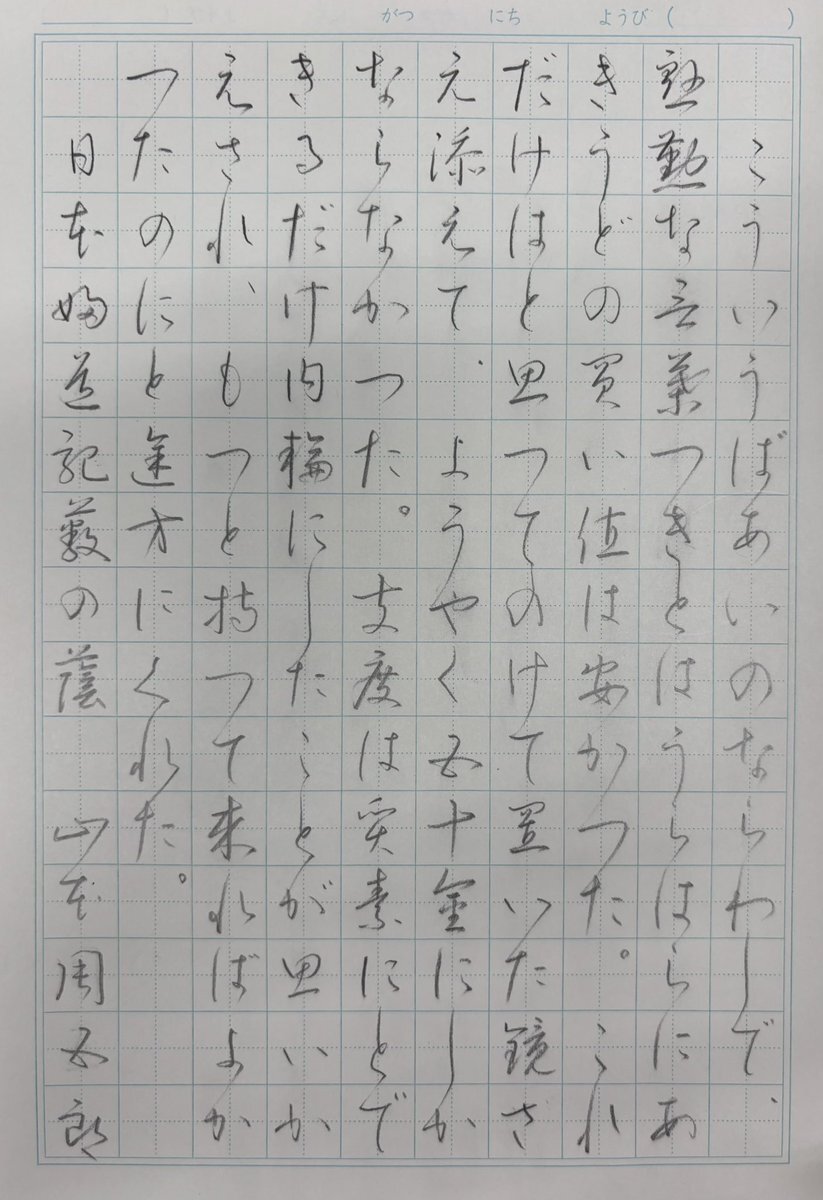 がつ にち ようび ( )
こういうばあいのならわしで、
慇懃な言葉つきとはうらはらにあ
きうどの買い値は安かつた。これ
だけはと思つてのけて置いた鏡さ
え添えて、ようやく五十金にしか
ならなかつた。支度は質素にとで
きるだけ内輪にしたことが思いか
えされ、もつと持つて来ればよか
つたのにと途方にくれた。
日本婦道記藪の蔭 山本周五郎